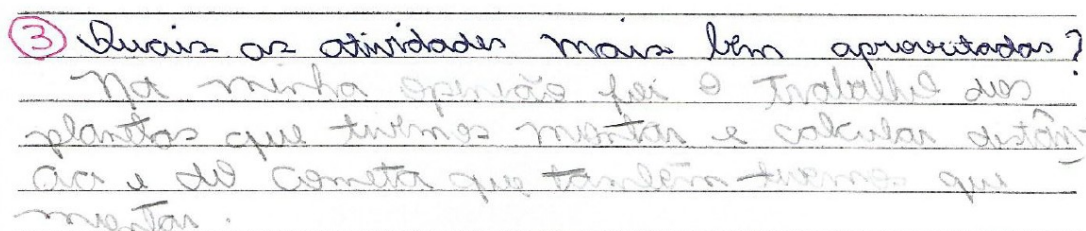 ③ Quais as atividades mais bem aproveitadas?
Na minha opinião foi o trabalho dos
planetas que tivemos montar e calcular distân
cia e do cometa que também tivemos que
montar.